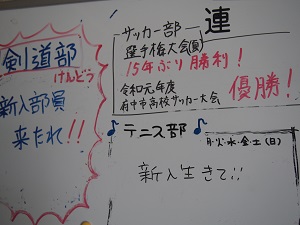 剣道部
けんどう
新入部員
来たれ!!
連
サッカー部
選手権大会(夏)
15年ぶり勝利!
令和元年度
府中市高校サッカー大会
優勝!
♪テニス部♪
月・火・水・金・土(日)
新入生きて!!